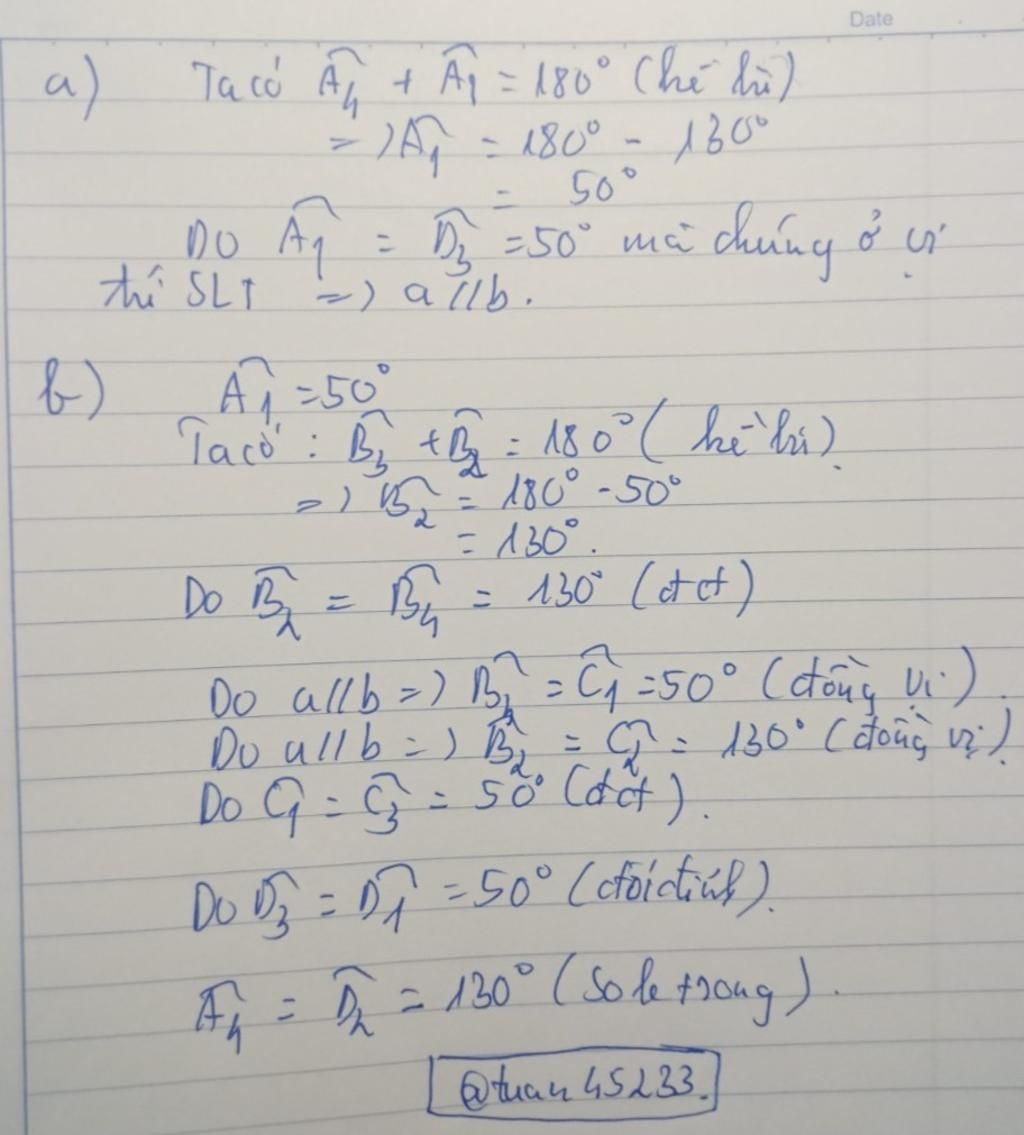 Date
a) Ta có Â₄ + Â₁ = 180° (kề bù)
=) Â₁ = 180° - 130°
= 50°
Do Â₁ = D̂₃ = 50° mà chúng ở vị
thí SLT =) a // b.
b) Â₁ = 50°
Ta có : B̂₃ + B̂₂ = 180° ( kề bù)
=) B̂₂ = 180° - 50°
= 130°.
Do B̂₂ = B̂₄ = 130° (đđ)
Do a // b =) B̂₁ = Ĉ₁ = 50° (đồng vị).
Do a // b =) B̂₂ = Ĉ₂ = 130° (đồng vị)
Do Ĉ₁ = Ĉ₃ = 50° (đđ).
Do D̂₃ = D̂₁ = 50° (đối đỉnh).
Â₄ = D̂₂ = 130° (So le trong).
@tuan45233.